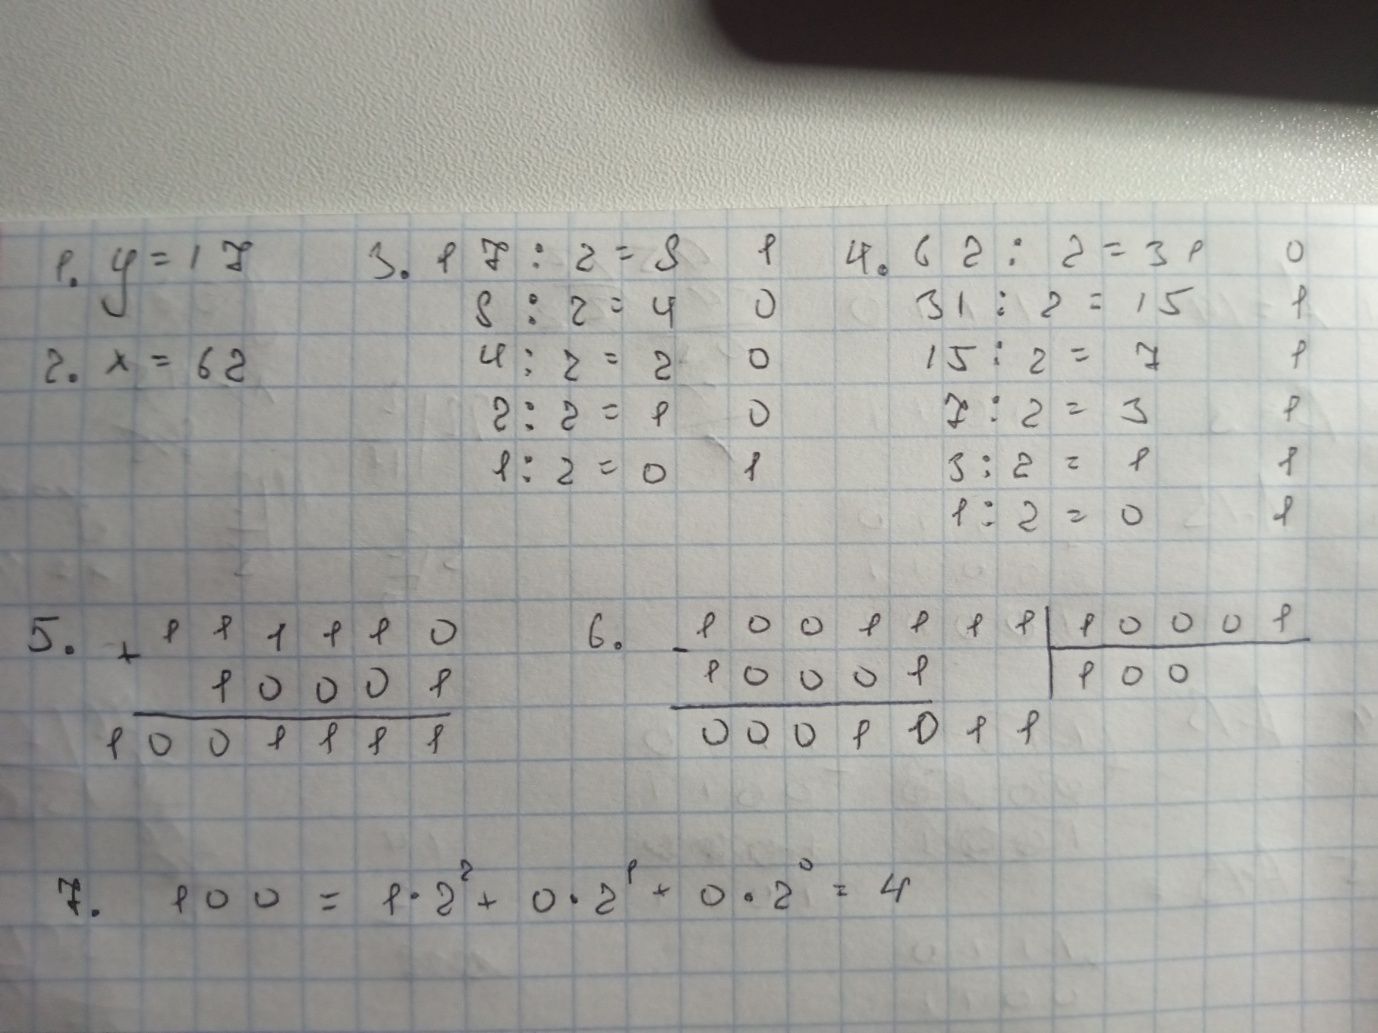 1. y = 17
2. x = 62
3. 17 : 2 = 8 1
8 : 2 = 4 0
4 : 2 = 2 0
2 : 2 = 1 0
1 : 2 = 0 1
4. 62 : 2 = 31 0
31 : 2 = 15 1
15 : 2 = 7 1
7 : 2 = 3 1
3 : 2 = 1 1
1 : 2 = 0 1
5. + 1 1 1 1 1 0
1 0 0 0 1
1 0 0 1 1 1 1
6. - 1 0 0 1 1 1 1 | 1 0 0 0 1
1 0 0 0 1 | 1 0 0
0 0 0 1 0 1 1
7. 100 = 1·2² + 0·2¹ + 0·2⁰ = 4